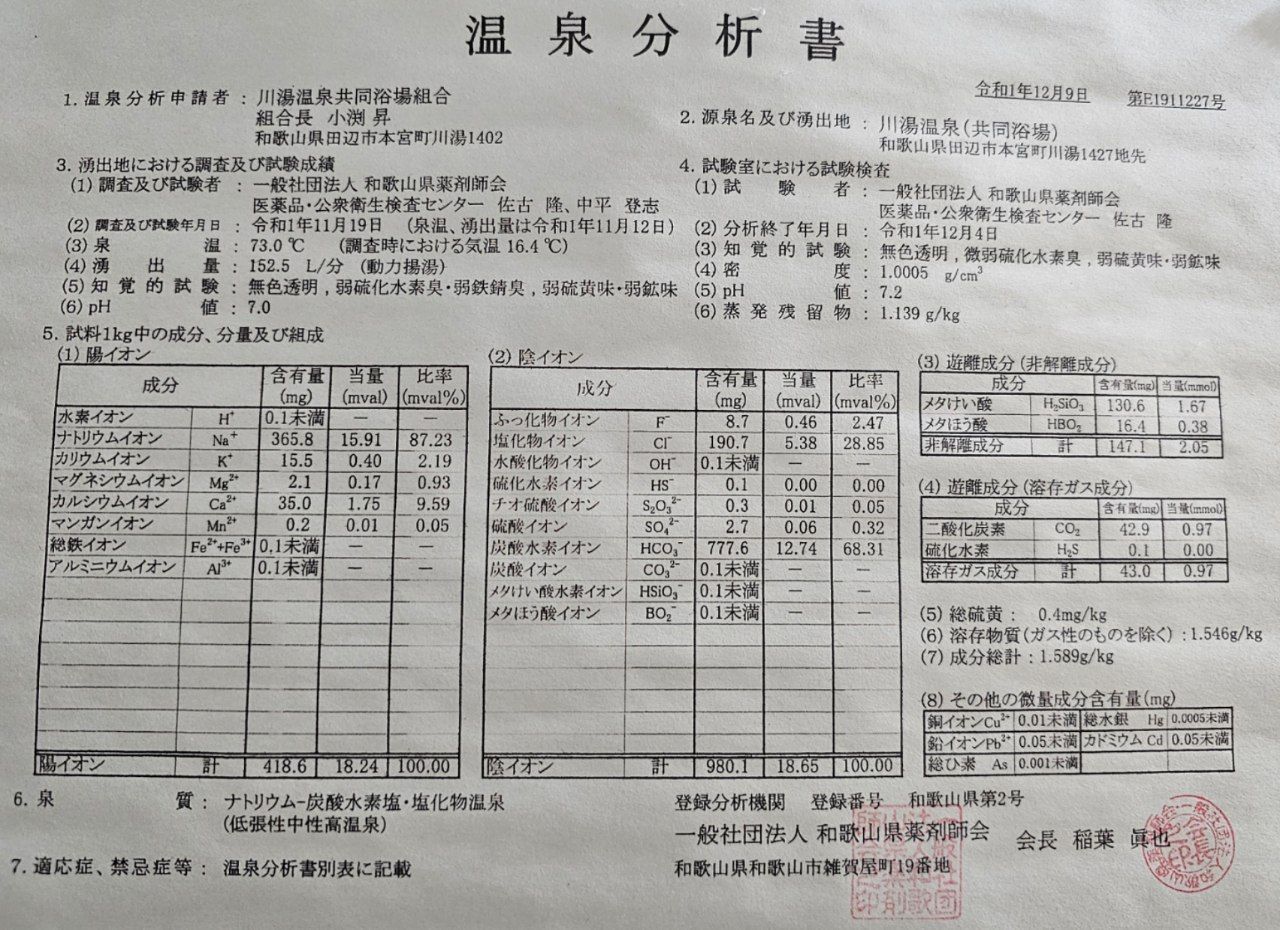 温泉分析書
令和1年12月9日 第E1911227号
1. 温泉分析申請者 : 川湯温泉共同浴場組合
組合長 小渕 昇
和歌山県田辺市本宮町川湯1402
2. 源泉名及び湧出地 : 川湯温泉(共同浴場)
和歌山県田辺市本宮町川湯1427地先
3. 湧出地における調査及び試験成績
(1) 調査及び試験者 : 一般社団法人 和歌山県薬剤師会
医薬品・公衆衛生検査センター 佐古 隆、中平 登志
(2) 調査及び試験年月日 : 令和1年11月19日 (泉温、湧出量は令和1年11月12日)
(3) 泉温 : 73.0 ℃ (調査時における気温 16.4 ℃)
(4) 湧出量 : 152.5 L/分 (動力揚湯)
(5) 知覚的試験 : 無色透明 , 弱硫化水素臭・弱鉄錆臭 , 弱硫黄味・弱鉱味
(6) pH値 : 7.0
4. 試験室における試験検査
(1) 試験者 : 一般社団法人 和歌山県薬剤師会
医薬品・公衆衛生検査センター 佐古 隆
(2) 分析終了年月日 : 令和1年12月4日
(3) 知覚的試験 : 無色透明 , 微弱硫化水素臭 , 弱硫黄味・弱鉱味
(4) 密度 : 1.0005 g/cm³
(5) pH値 : 7.2
(6) 蒸発残留物 : 1.139 g/kg
5. 試料1kg中の成分、分量及び組成
(1) 陽イオン
成分 含有量(mg) 当量(mval) 比率(mval%)
水素イオン H⁺ 0.1未満 — —
ナトリウムイオン Na⁺ 365.8 15.91 87.23
カリウムイオン K⁺ 15.5 0.40 2.19
マグネシウムイオン Mg²⁺ 2.1 0.17 0.93
カルシウムイオン Ca²⁺ 35.0 1.75 9.59
マンガンイオン Mn²⁺ 0.2 0.01 0.05
総鉄イオン Fe²⁺+Fe³⁺ 0.1未満 — —
アルミニウムイオン Al³⁺ 0.1未満 — —
陽イオン 計 418.6 18.24 100.00
(2) 陰イオン
成分 含有量(mg) 当量(mval) 比率(mval%)
ふっ化物イオン F⁻ 8.7 0.46 2.47
塩化物イオン Cl⁻ 190.7 5.38 28.85
水酸化物イオン OH⁻ 0.1未満 — —
硫化水素イオン HS⁻ 0.1 0.00 0.00
チオ硫酸イオン S₂O₃²⁻ 0.3 0.01 0.05
硫酸イオン SO₄²⁻ 2.7 0.06 0.32
炭酸水素イオン HCO₃⁻ 777.6 12.74 68.31
炭酸イオン CO₃²⁻ 0.1未満 — —
メタけい酸水素イオン HSiO₃⁻ 0.1未満 — —
メタほう酸イオン BO₂⁻ 0.1未満 — —
陰イオン 計 980.1 18.65 100.00
(3) 遊離成分 (非解離成分)
成分 含有量(mg) 当量(mmol)
メタけい酸 H₂SiO₃ 130.6 1.67
メタほう酸 HBO₂ 16.4 0.38
非解離成分 計 147.1 2.05
(4) 遊離成分 (溶存ガス成分)
成分 含有量(mg) 当量(mmol)
二酸化炭素 CO₂ 42.9 0.97
硫化水素 H₂S 0.1 0.00
溶存ガス成分 計 43.0 0.97
(5) 総硫黄 : 0.4mg/kg
(6) 溶存物質 (ガス性のものを除く) : 1.546g/kg
(7) 成分総計 : 1.589g/kg
(8) その他の微量成分含有量(mg)
銅イオンCu²⁺ 0.01未満 総水銀 Hg 0.0005未満
鉛イオンPb²⁺ 0.05未満 カドミウム Cd 0.05未満
総ひ素 As 0.001未満
6. 泉質 : ナトリウム−炭酸水素塩・塩化物温泉
(低張性中性高温泉)
7. 適応症、禁忌症等 : 温泉分析書別表に記載
登録分析機関 登録番号 和歌山県第2号
一般社団法人 和歌山県薬剤師会 会長 稲葉 眞也
和歌山県和歌山市雑賀屋町19番地